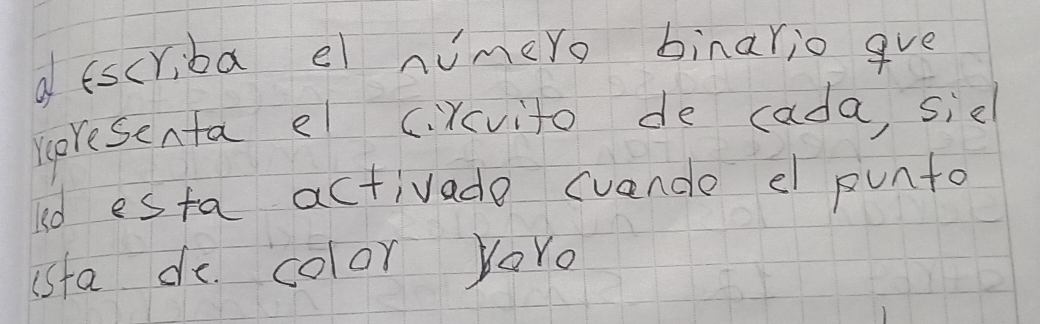 a) Escriba el número binario que
representa el circuito de cada, si el
led esta activado cuando el punto
esta de. color roro